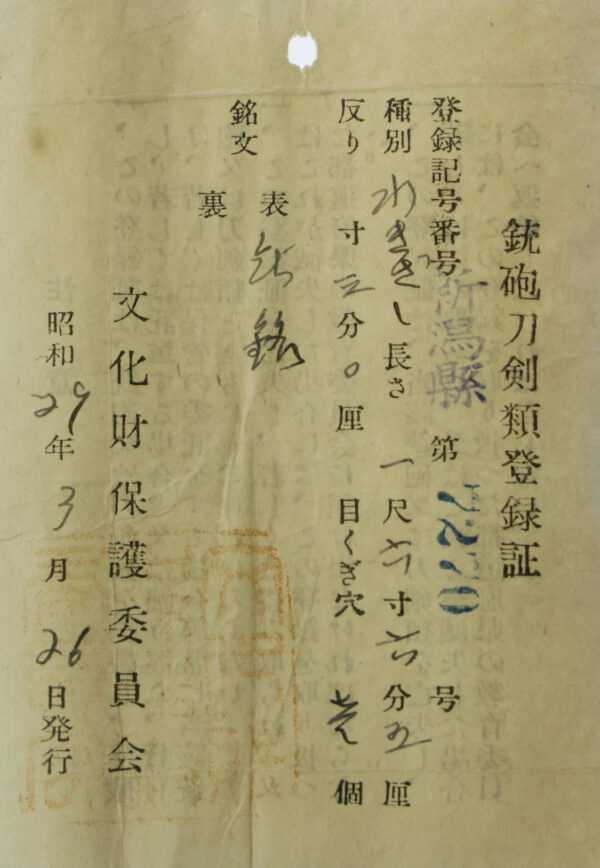 銃砲刀劍類登録証
登録記号番号 新潟縣 第 号
種別 わきざし 長さ 一尺六寸六分五厘
反り 寸三分〇厘 目くぎ穴 壱個
銘文 表 無銘
裏
文化財保護委員会
昭和29年3月26日発行